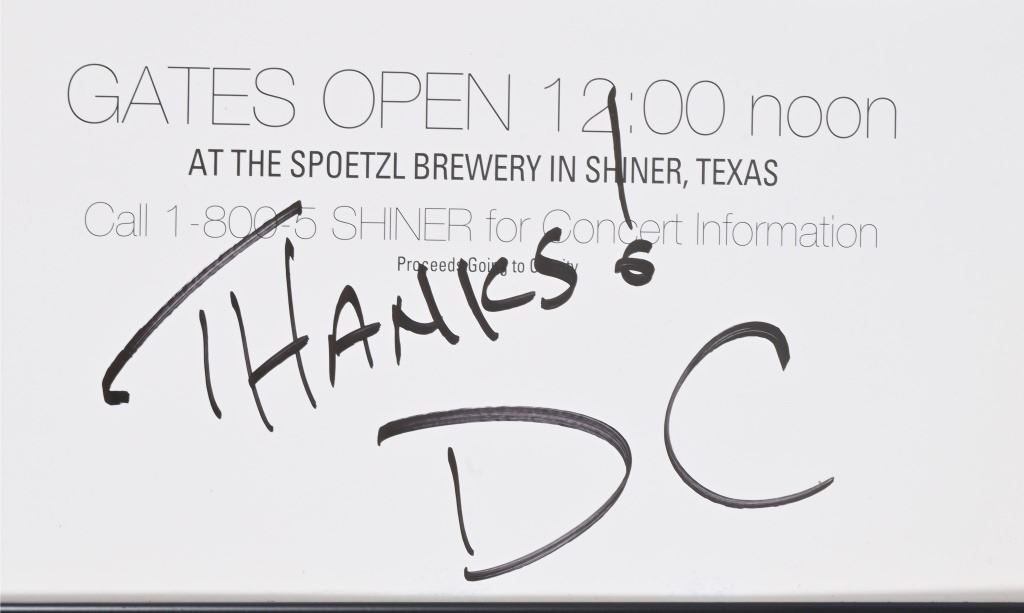 GATES OPEN 12:00 noon
AT THE SPOETZL BREWERY IN SHINER, TEXAS
Call 1-800-5 SHINER for Concert Information
Proceeds Going to Charity
THANKS!
DC